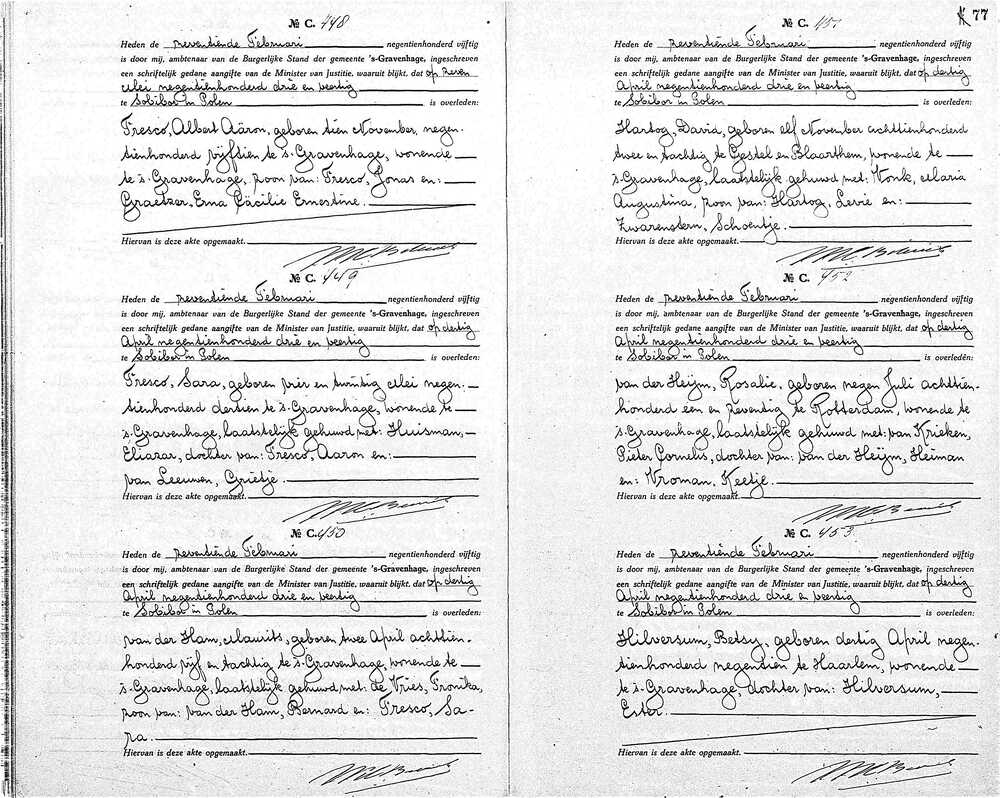 77
№ C. 448
Heden de zeventiende Februari negentienhonderd vijftig
is door mij, ambtenaar van de Burgerlijke Stand der gemeente 's-Gravenhage, ingeschreven
een schriftelijk gedane aangifte van de Minister van Justitie, waaruit blijkt, dat op zeven
Mei negentienhonderd drie en veertig
te Sobibor in Polen is overleden:
Fresco, Albert Aäron, geboren tien November, negen-
tienhonderd vijftien te 's-Gravenhage, wonende
te 's-Gravenhage, zoon van: Fresco, Jonas en:
Graetzer, Erna Cäcilie Ernestine.
Hiervan is deze akte opgemaakt.
№ C. 449
Heden de zeventiende Februari negentienhonderd vijftig
is door mij, ambtenaar van de Burgerlijke Stand der gemeente 's-Gravenhage, ingeschreven
een schriftelijk gedane aangifte van de Minister van Justitie, waaruit blijkt, dat op dertig
April negentienhonderd drie en veertig
te Sobibor in Polen is overleden:
Fresco, Sara, geboren vier en twintig Mei negen-
tienhonderd dertien te 's-Gravenhage, wonende te
's-Gravenhage, laatstelijk gehuwd met: Huisman,
Eliazar, dochter van: Fresco, Aaron en:
van Leeuwen, Grietje.
Hiervan is deze akte opgemaakt.
№ C. 450
Heden de zeventiende Februari negentienhonderd vijftig
is door mij, ambtenaar van de Burgerlijke Stand der gemeente 's-Gravenhage, ingeschreven
een schriftelijk gedane aangifte van de Minister van Justitie, waaruit blijkt, dat op dertig
April negentienhonderd drie en veertig
te Sobibor in Polen is overleden:
van der Ham, Maurits, geboren twee April achttien-
honderd vijf en tachtig te 's-Gravenhage, wonende te
's-Gravenhage, laatstelijk gehuwd met: de Vries, Fronika,
zoon van: van der Ham, Bernard en: Fresco, Sa-
ra.
Hiervan is deze akte opgemaakt.
№ C. 451
Heden de zeventiende Februari negentienhonderd vijftig
is door mij, ambtenaar van de Burgerlijke Stand der gemeente 's-Gravenhage, ingeschreven
een schriftelijk gedane aangifte van de Minister van Justitie, waaruit blijkt, dat op dertig
April negentienhonderd drie en veertig
te Sobibor in Polen is overleden:
Hartog, David, geboren elf November achttienhonderd
twee en tachtig te Gestel en Blaarthem, wonende te
's-Gravenhage, laatstelijk gehuwd met: Vonk, Maria
Augustina, zoon van: Hartog, Levie en:
Zwarenstern, Schoentje.
Hiervan is deze akte opgemaakt.
№ C. 452
Heden de zeventiende Februari negentienhonderd vijftig
is door mij, ambtenaar van de Burgerlijke Stand der gemeente 's-Gravenhage, ingeschreven
een schriftelijk gedane aangifte van de Minister van Justitie, waaruit blijkt, dat op dertig
April negentienhonderd drie en veertig
te Sobibor in Polen is overleden:
van der Heijm, Rosalie, geboren negen Juli achttien-
honderd een en zeventig te Rotterdam, wonende te
's-Gravenhage, laatstelijk gehuwd met: van Krieken,
Pieter Cornelis, dochter van: van der Heijm, Heiman
en: Vroman, Keetje.
Hiervan is deze akte opgemaakt.
№ C. 453
Heden de zeventiende Februari negentienhonderd vijftig
is door mij, ambtenaar van de Burgerlijke Stand der gemeente 's-Gravenhage, ingeschreven
een schriftelijk gedane aangifte van de Minister van Justitie, waaruit blijkt, dat op dertig
April negentienhonderd drie en veertig
te Sobibor in Polen is overleden:
Hilversum, Betsy, geboren dertig April negen-
tienhonderd negentien te Haarlem, wonende
te 's-Gravenhage, dochter van: Hilversum,
Ester.
Hiervan is deze akte opgemaakt.